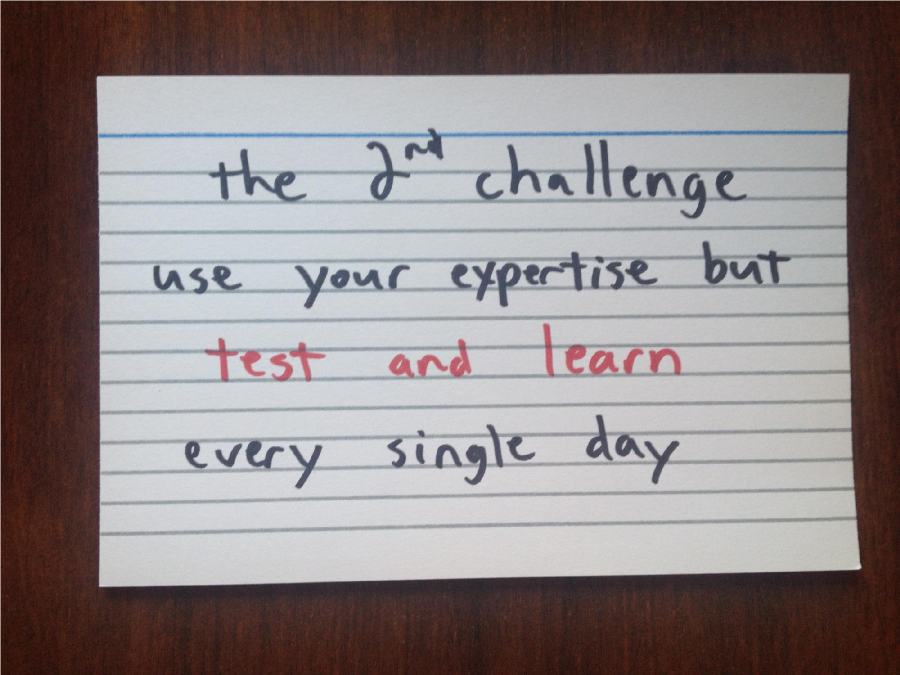 the 2nd challenge
use your expertise but
test and learn
every single day